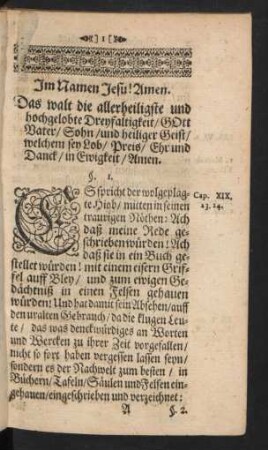 ⸎) 1 (⸎
Im Namen Jesu! Amen.
Das walt die allerheiligste und
hochgelobte Dreyfaltigkeit / GOtt
Vater / Sohn / und heiliger Geist /
welchem sey Lob / Preis / Ehr und
Danck / in Ewigkeit / Amen.
§. 1.
ES spricht der wolgeplag-
te Hiob / mitten in seinen
traurigen Nöthen: Ach
daß meine Rede ge-
schrieben würden! Ach
daß sie in ein Buch ge-
stellet würden! mit einem eisern Grif-
fel auff Bley / und zum ewigen Ge-
dächtniß in einen Felsen gehauen
würden! Und hat damit sein Absehen / auff
den uralten Gebrauch / da die klugen Leu-
te / das was denckwürdiges an Worten
und Wercken zu ihrer Zeit vorgefallen /
nicht so fort haben vergessen lassen seyn /
sondern es der Nachwelt zum besten / in
Büchern / Tafeln / Säulen und Felsen ein-
gehauen / eingeschrieben und verzeichnet:
Cap. XIX,
23. 24.
A §. 2.